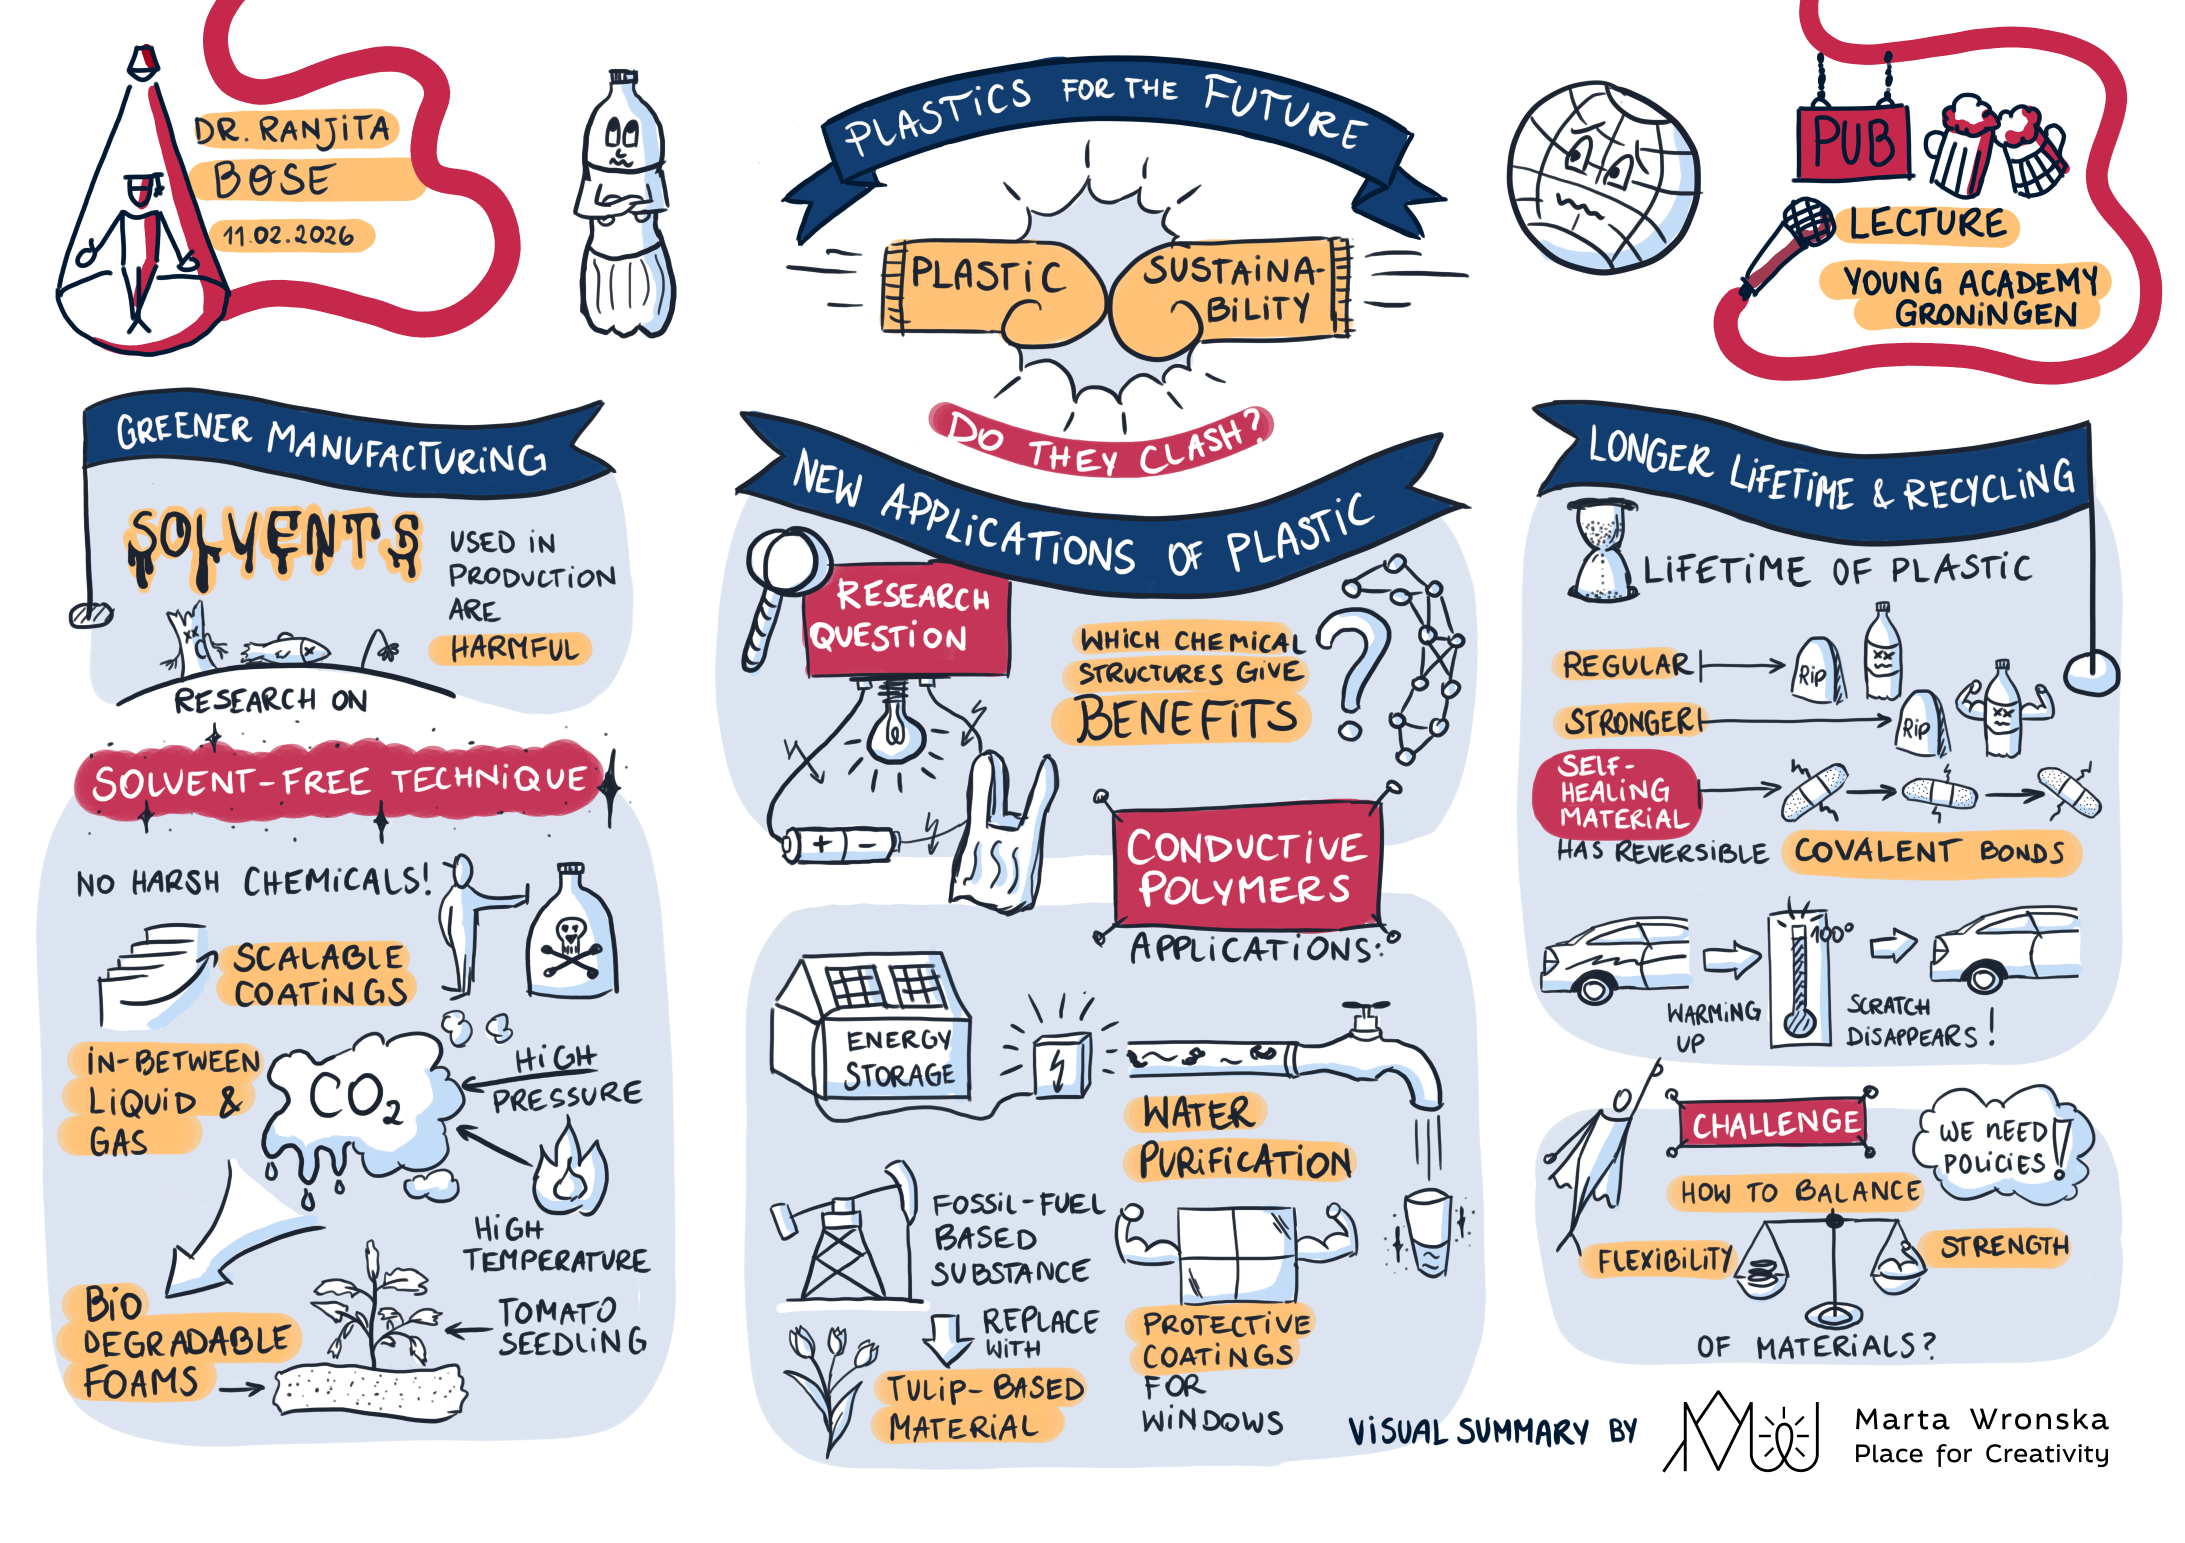 DR. RANJITA
BOSE
11.02.2026
PLASTICS FOR THE FUTURE
PLASTIC
SUSTAINA-
BILITY
DO THEY CLASH?
PUB
LECTURE
YOUNG ACADEMY
GRONINGEN
GREENER MANUFACTURING
SOLVENTS
USED IN
PRODUCTION
ARE
HARMFUL
RESEARCH ON
SOLVENT-FREE TECHNIQUE
NO HARSH CHEMICALS!
SCALABLE
COATINGS
IN-BETWEEN
LIQUID &
GAS
CO2
HIGH
PRESSURE
HIGH
TEMPERATURE
BIO
DEGRADABLE
FOAMS
TOMATO
SEEDLING
NEW APPLICATIONS OF PLASTIC
RESEARCH
QUESTION
WHICH CHEMICAL
STRUCTURES GIVE
BENEFITS
?
+ -
CONDUCTIVE
POLYMERS
APPLICATIONS:
ENERGY
STORAGE
WATER
PURIFICATION
FOSSIL-FUEL
BASED
SUBSTANCE
REPLACE
WITH
TULIP-BASED
MATERIAL
PROTECTIVE
COATINGS
FOR
WINDOWS
LONGER LIFETIME & RECYCLING
LIFETIME OF PLASTIC
REGULAR
RIP
STRONGER
RIP
SELF-
HEALING
MATERIAL
HAS REVERSIBLE COVALENT BONDS
100°
WARMING
UP
SCRATCH
DISAPPEARS!
CHALLENGE
WE NEED
POLICIES!
HOW TO BALANCE
FLEXIBILITY
STRENGTH
OF MATERIALS?
VISUAL SUMMARY BY
Marta Wronska
Place for Creativity